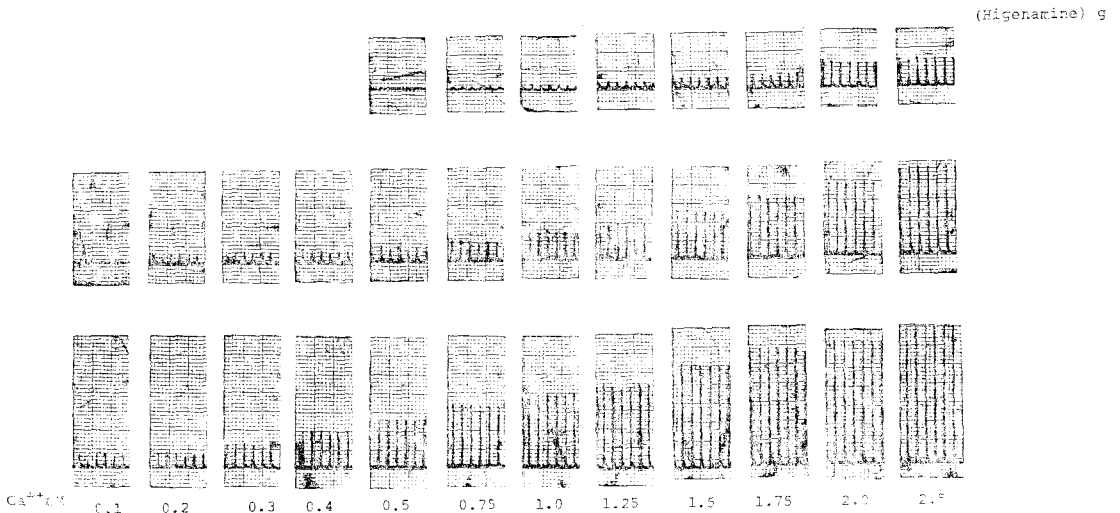 (Higenamine) g
0.1 0.2 0.3 0.4 0.5 0.75 1.0 1.25 1.5 1.75